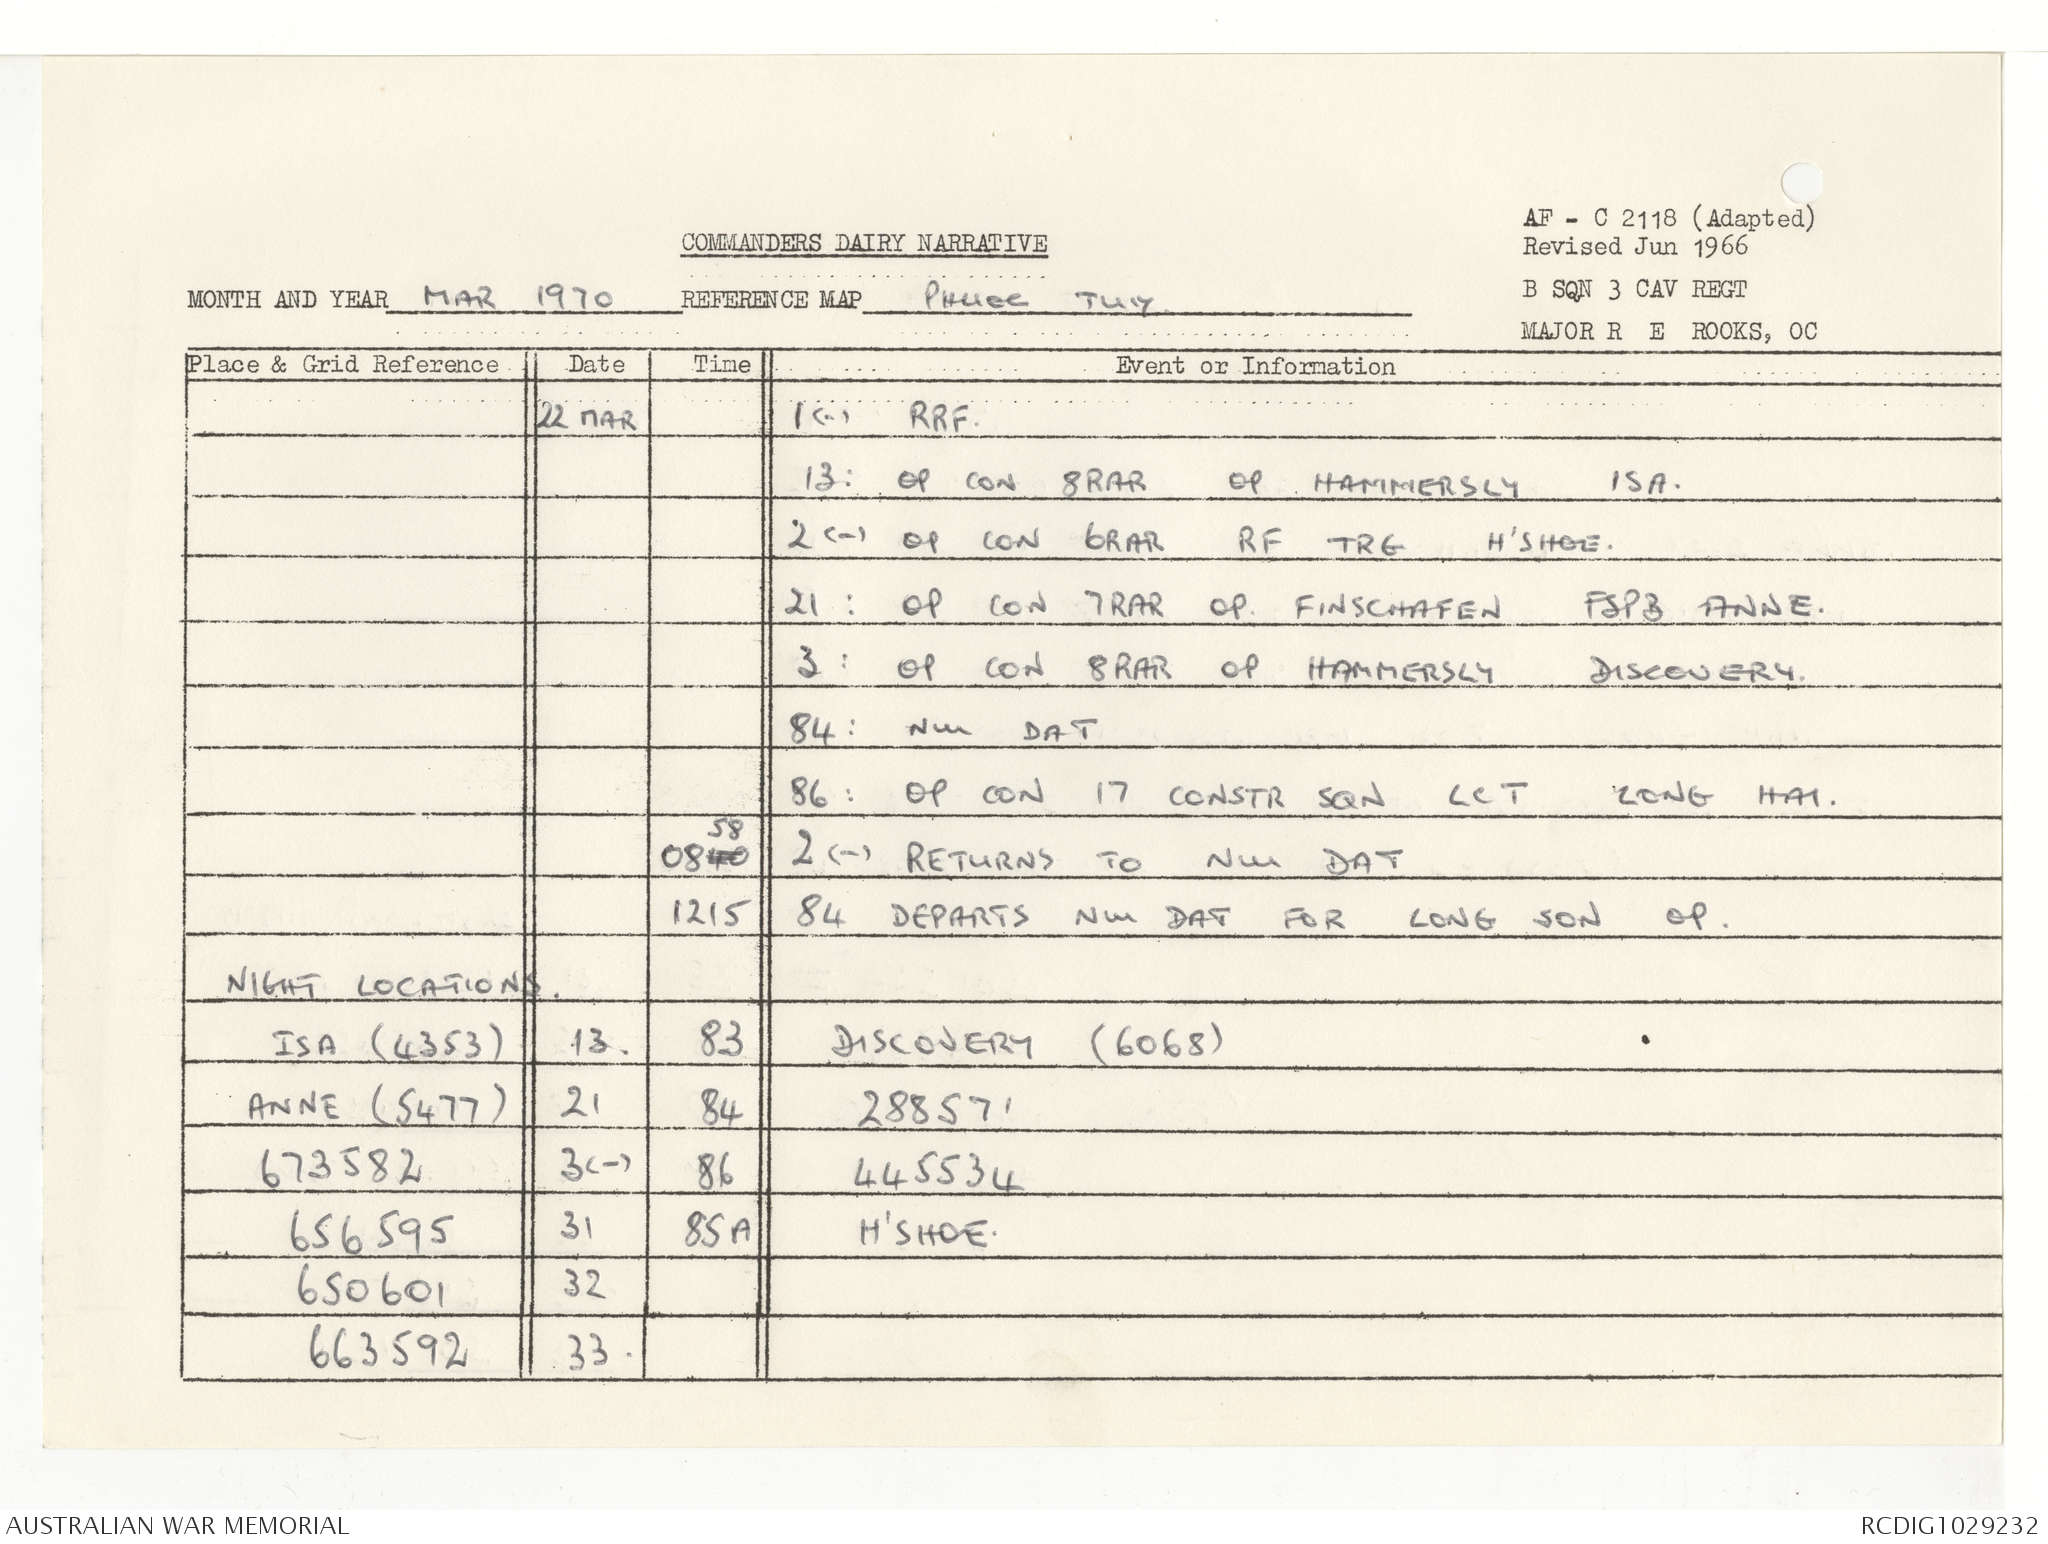 AF - C 2118 (Adapted)
COMMANDERS DAIRY NARRATIVE
Revised Jun 1966
B SQN 3 CAV REGT
MONTH AND YEAR MAR 1970 REFERENCE MAP PHUOC TUY.
MAJOR R E ROOKS, OC
Place & Grid Reference Date Time Event or Information
22 MAR 1(-) RRF.
13: OP CON 8RAR OP HAMMERSLY ISA.
2(-) OP CON 6RAR RF TRG H'SHOE.
21: OP CON 7RAR OP. FINSCHAFEN FSPB ANNE.
3: OP CON 8RAR OP HAMMERSLY DISCOVERY.
84: NUI DAT
86: OP CON 17 CONSTR SQN LCT LONG HAI.
58
0840 2(-) RETURNS TO NUI DAT
1215 84 DEPARTS NUI DAT FOR LONG SON OP.
NIGHT LOCATIONS.
ISA (4353) 13. 83 DISCOVERY (6068)
ANNE (5477) 21 84 288571
673582 3(-) 86 445534
656595 31 85A H'SHOE.
650601 32
663592 33.
AUSTRALIAN WAR MEMORIAL RCDIG1029232